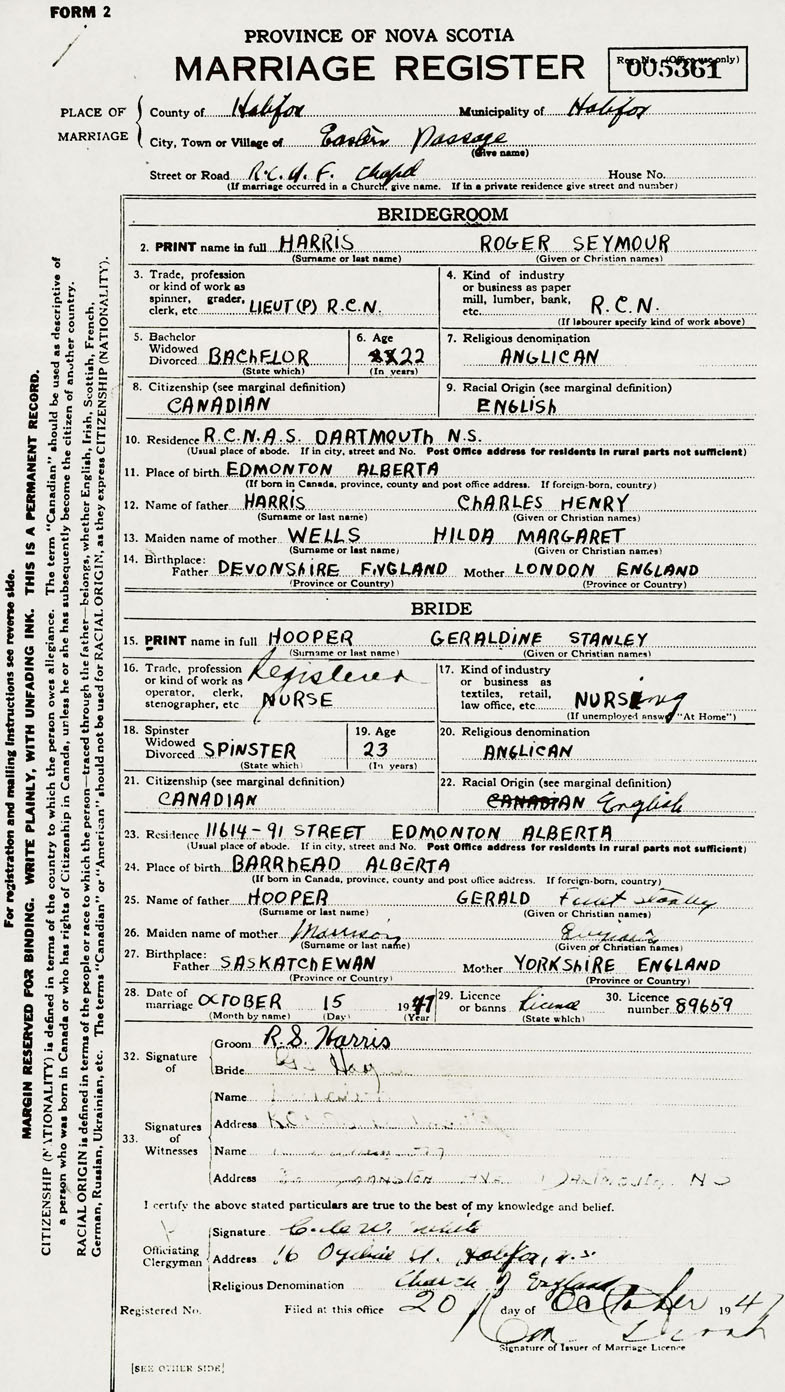 FORM 2
PROVINCE OF NOVA SCOTIA
MARRIAGE REGISTER
Reg. No. (Office use only)
005361
PLACE OF MARRIAGE
County of Halifax Municipality of Halifax
City, Town or Village of Eastern Passage
(Give name)
Street or Road R.C.A.F. Chapel House No.
(If marriage occurred in a Church, give name. If in a private residence give street and number)
BRIDEGROOM
2. PRINT name in full HARRIS ROGER SEYMOUR
(Surname or last name) (Given or Christian names)
3. Trade, profession or kind of work as spinner, grader, clerk, etc LIEUT(P) R.C.N.
4. Kind of industry or business as paper mill, lumber, bank, etc. R.C.N.
(If labourer specify kind of work above)
5. Bachelor Widowed Divorced BACHELOR
(State which)
6. Age 22
(In years)
7. Religious denomination
ANGLICAN
8. Citizenship (see marginal definition)
CANADIAN
9. Racial Origin (see marginal definition)
ENGLISH
10. Residence R.C.N.A.S. DARTMOUTH N.S.
(Usual place of abode. If in city, street and No. Post Office address for residents in rural parts not sufficient)
11. Place of birth EDMONTON ALBERTA
(If born in Canada, province, county and post office address. If foreign-born, country)
12. Name of father HARRIS CHARLES HENRY
(Surname or last name) (Given or Christian names)
13. Maiden name of mother WELLS HILDA MARGARET
(Surname or last name) (Given or Christian names)
14. Birthplace: Father DEVONSHIRE ENGLAND Mother LONDON ENGLAND
(Province or Country) (Province or Country)
BRIDE
15. PRINT name in full HOOPER GERALDINE STANLEY
(Surname or last name) (Given or Christian names)
16. Trade, profession or kind of work as operator, clerk, stenographer, etc Registered NURSE
17. Kind of industry or business as textiles, retail, law office, etc. NURSing
(If unemployed answer "At Home")
18. Spinster Widowed Divorced SPINSTER
(State which)
19. Age
23
(In years)
20. Religious denomination
ANGLICAN
21. Citizenship (see marginal definition)
CANADIAN
22. Racial Origin (see marginal definition)
CANADIAN English
23. Residence 11614-91 STREET EDMONTON ALBERTA
(Usual place of abode. If in city, street and No. Post Office address for residents in rural parts not sufficient)
24. Place of birth BARRHEAD ALBERTA
(If born in Canada, province, county and post office address. If foreign-born, country)
25. Name of father HOOPER GERALD Stanley
(Surname or last name) (Given or Christian names)
26. Maiden name of mother Morrison
(Surname or last name) (Given or Christian names)
27. Birthplace: Father SASKATCHEWAN Mother YORKSHIRE ENGLAND
(Province or Country) (Province or Country)
28. Date of marriage OCTOBER 15 1947
(Month by name) (Day) (Year)
29. Licence or banns License
(State which)
30. Licence number 89659
32. Signature of
Groom R.S. Harris
Bride
33. Signatures of Witnesses
Name
Address
Name
Address Dartmouth, NS
I certify the above stated particulars are true to the best of my knowledge and belief.
Officiating Clergyman
Signature
Address 16 Ogilvie St. Halifax, N.S.
Religious Denomination Church of England
Registered No. Filed at this office 20 day of October 1947
Signature of Issuer of Marriage Licence
[SEE OTHER SIDE]
For registration and mailing instructions see reverse side.
MARGIN RESERVED FOR BINDING. WRITE PLAINLY, WITH UNFADING INK. THIS IS A PERMANENT RECORD.
CITIZENSHIP (NATIONALITY) is defined in terms of the country to which the person owes allegiance. The term "Canadian" should be used as descriptive of
a person who was born in Canada or who has rights of Citizenship in Canada, unless he or she has subsequently become the citizen of another country.
RACIAL ORIGIN is defined in terms of the people or race to which the person—traced through the father—belongs, whether English, Irish, Scottish, French,
German, Russian, Ukrainian, etc. The terms "Canadian" or "American" should not be used for RACIAL ORIGIN, as they express CITIZENSHIP (NATIONALITY).